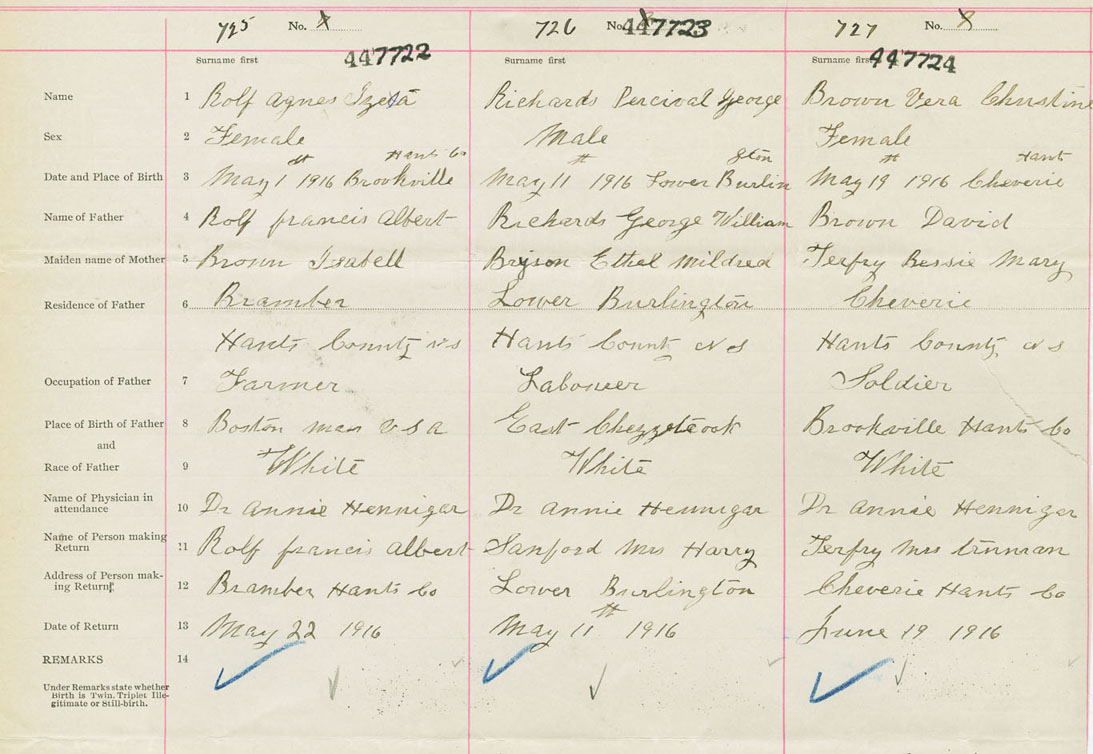 725 No. 8 726 No. 8 447723 727 No. 8
Surname first 447722 Surname first Surname first 447724
Name 1 Rolf Agnes Richards Percival George Brown Vera Christine
Sex 2 Female Male Female
Hants Co gton Hants
Date and Place of Birth 3 May 1st 1916 Brookville May 11th 1916 Lower Burlin May 19th 1916 Cheverie
Name of Father 4 Rolf francis Albert Richards George William Brown David
Maiden name of Mother 5 Brown Isabell Bryson Ethel Mildred Terfry Bessie Mary
Residence of Father 6 Bramber Lower Burlington Cheverie
Hants County N S Hants County N S Hants County N S
Occupation of Father 7 Farmer Labouer Soldier
Place of Birth of Father 8 Boston mass U S A East Chezzetcook Brookville Hants Co
and
Race of Father 9 White White White
Name of Physician in
attendance 10 Dr Annie Hennigar Dr Annie Hennigar Dr Annie Hennigar
Name of Person making
Return 11 Rolf francis Albert Sanford Mrs Harry Terfry Mrs
Address of Person mak-
ing Return 12 Bramber Hants Co Lower Burlington Cheverie Hants Co
Date of Return 13 May 22 1916 May 11th 1916 June 19 1916
REMARKS 14
Under Remarks state whether
Birth is Twin, Triplet Ille-
gitimate or Still-birth.